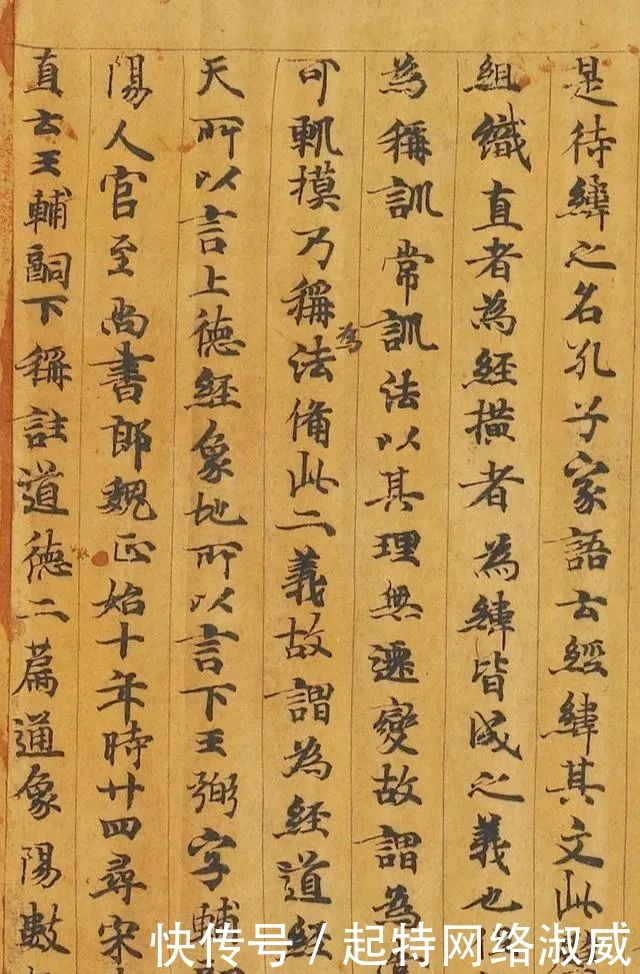 是待緯之名孔子家語云經緯其文此
組織直者為經橫者為緯皆成之義也
為稱訓常訓法以其理無遷變故謂為
可軌摸乃稱為法俻此二義故謂為經道經
天所以言上德經象地所以言下王弼字輔
陽人官至尚書郎魏正始十年時廿四尋宋
直云王輔嗣下稱註道德二篇通象陽數
快传号/起特网络淑威